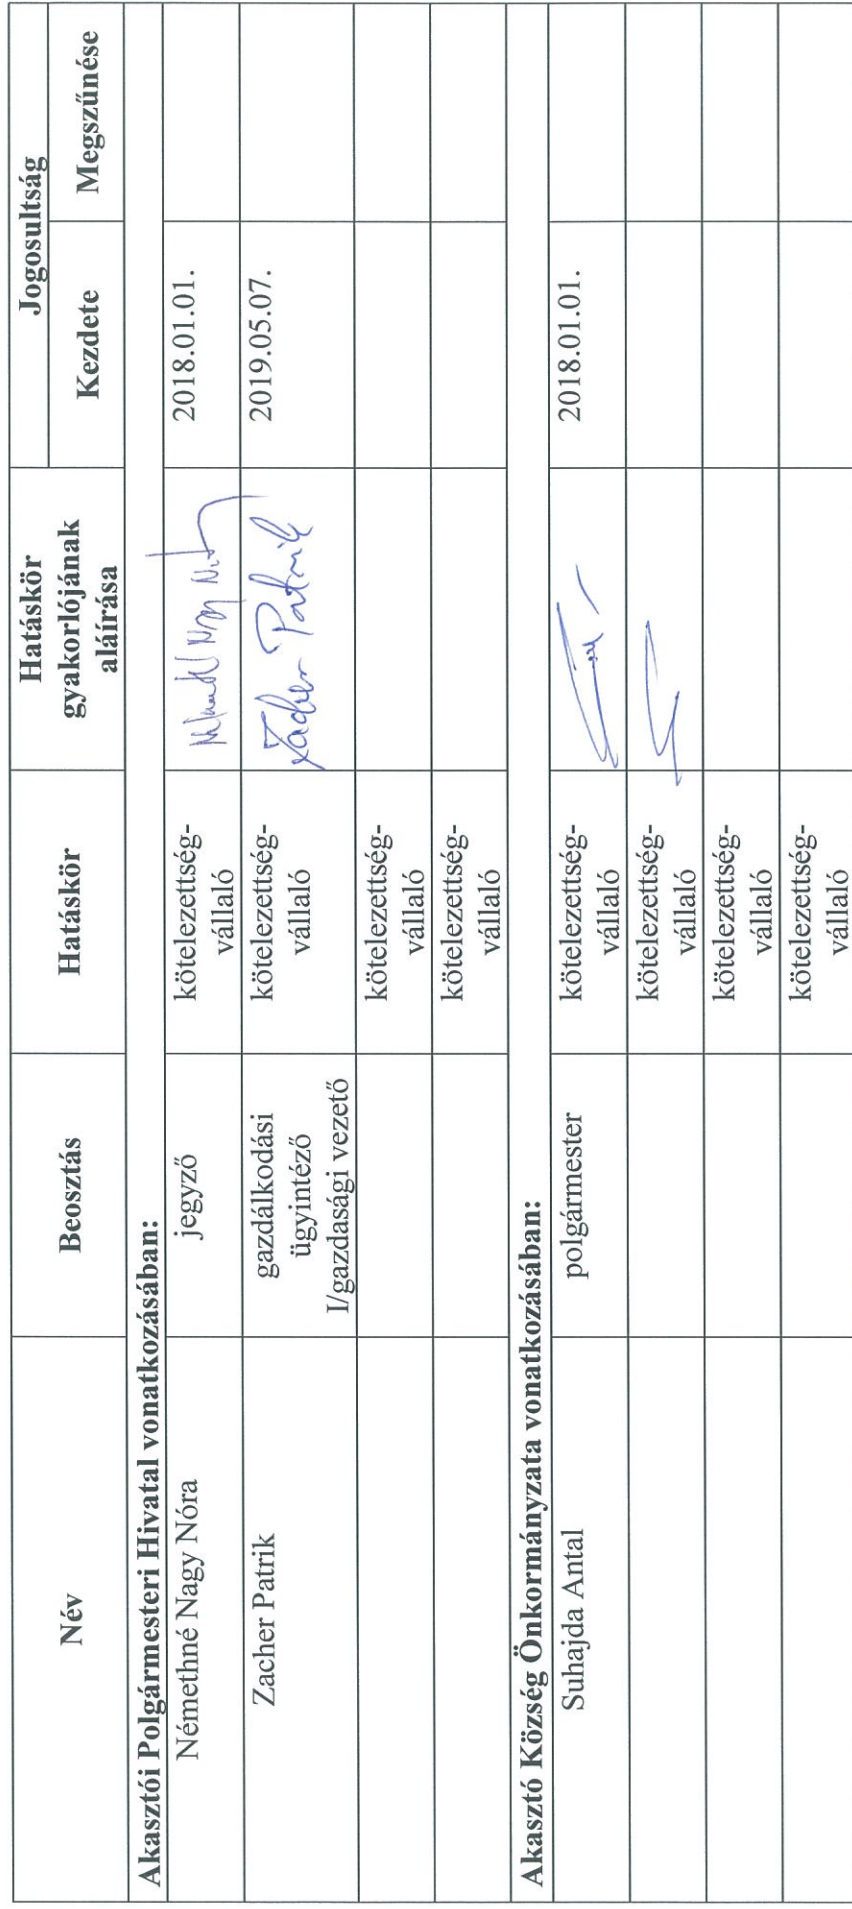 Név
Beosztás
Hatáskör
Hatáskör
gyakorlójának
aláírása
Jogosultság
Kezdete
Megszűnése
Akasztói Polgármesteri Hivatal vonatkozásában:
Némethné Nagy Nóra
jegyző
kötelezettség-
vállaló
2018.01.01.
Zacher Patrik
gazdálkodási
ügyintéző
I/gazdasági vezető
kötelezettség-
vállaló
Zacher Patrik
2019.05.07.
kötelezettség-
vállaló
kötelezettség-
vállaló
Akasztó Község Önkormányzata vonatkozásában:
Suhajda Antal
polgármester
kötelezettség-
vállaló
2018.01.01.
kötelezettség-
vállaló
kötelezettség-
vállaló
kötelezettség-
vállaló